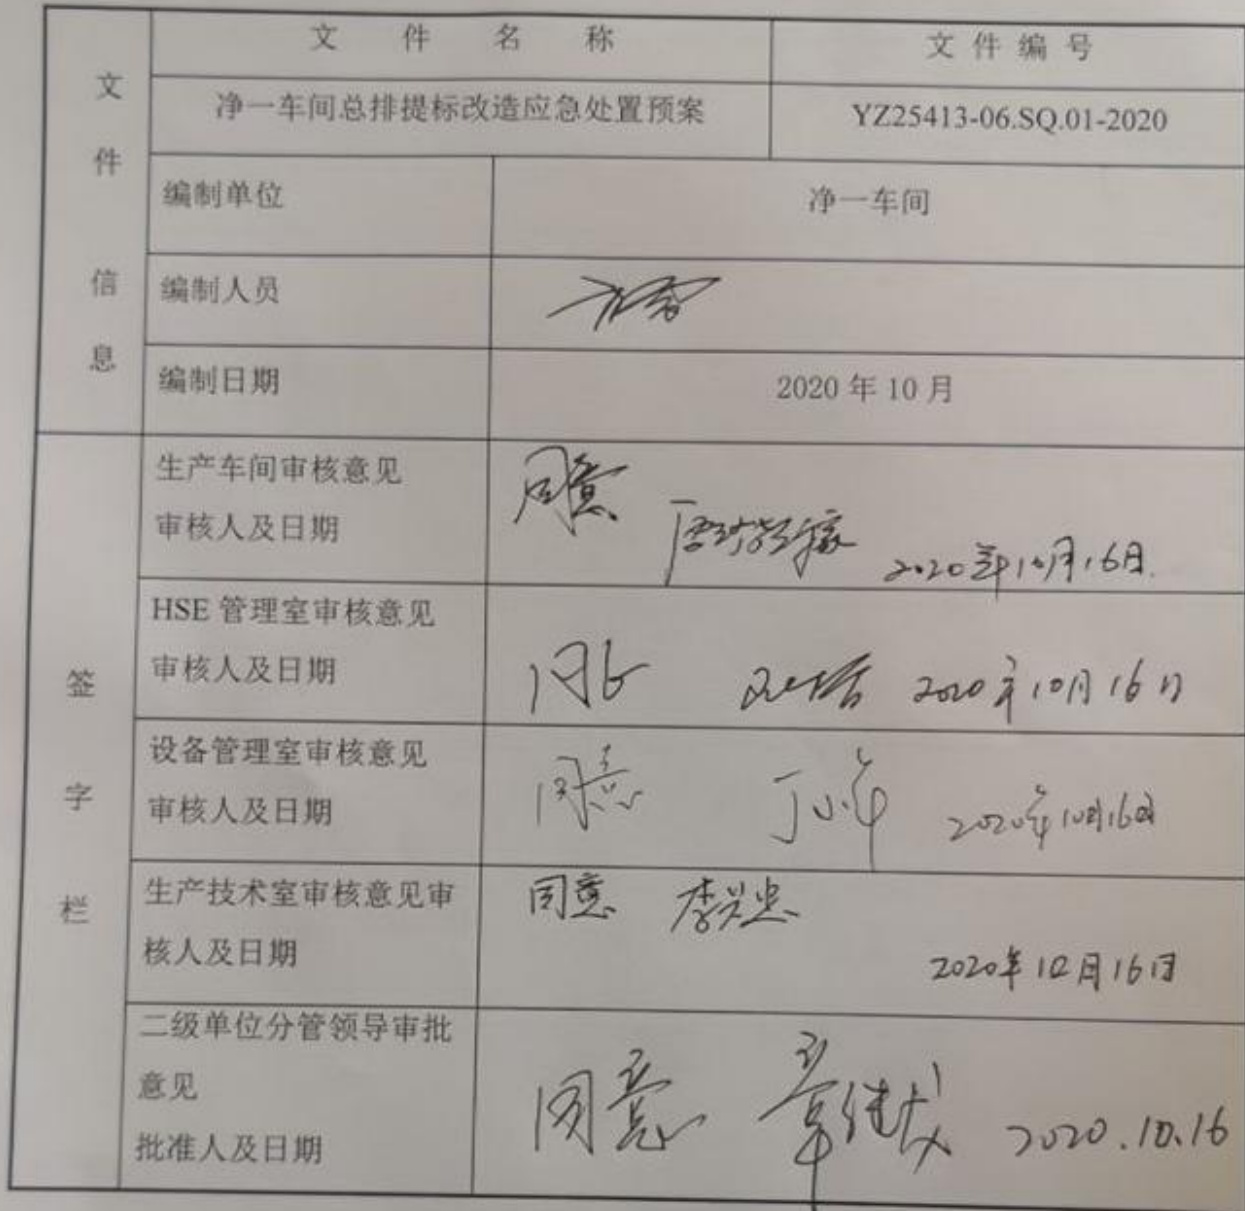 文件信息
文件名称 文件编号
净一车间总排提标改造应急处置预案 YZ25413-06.SQ.01-2020
编制单位 净一车间
编制人员
编制日期 2020年10月
签字栏
生产车间审核意见 同意
审核人及日期 2020年10月16日
HSE管理室审核意见
审核人及日期 同意 2020年10月16日
设备管理室审核意见 同意
审核人及日期 2020年10月16日
生产技术室审核意见审 同意 李兴忠
核人及日期 2020年10月16日
二级单位分管领导审批
意见 同意
批准人及日期 2020.10.16